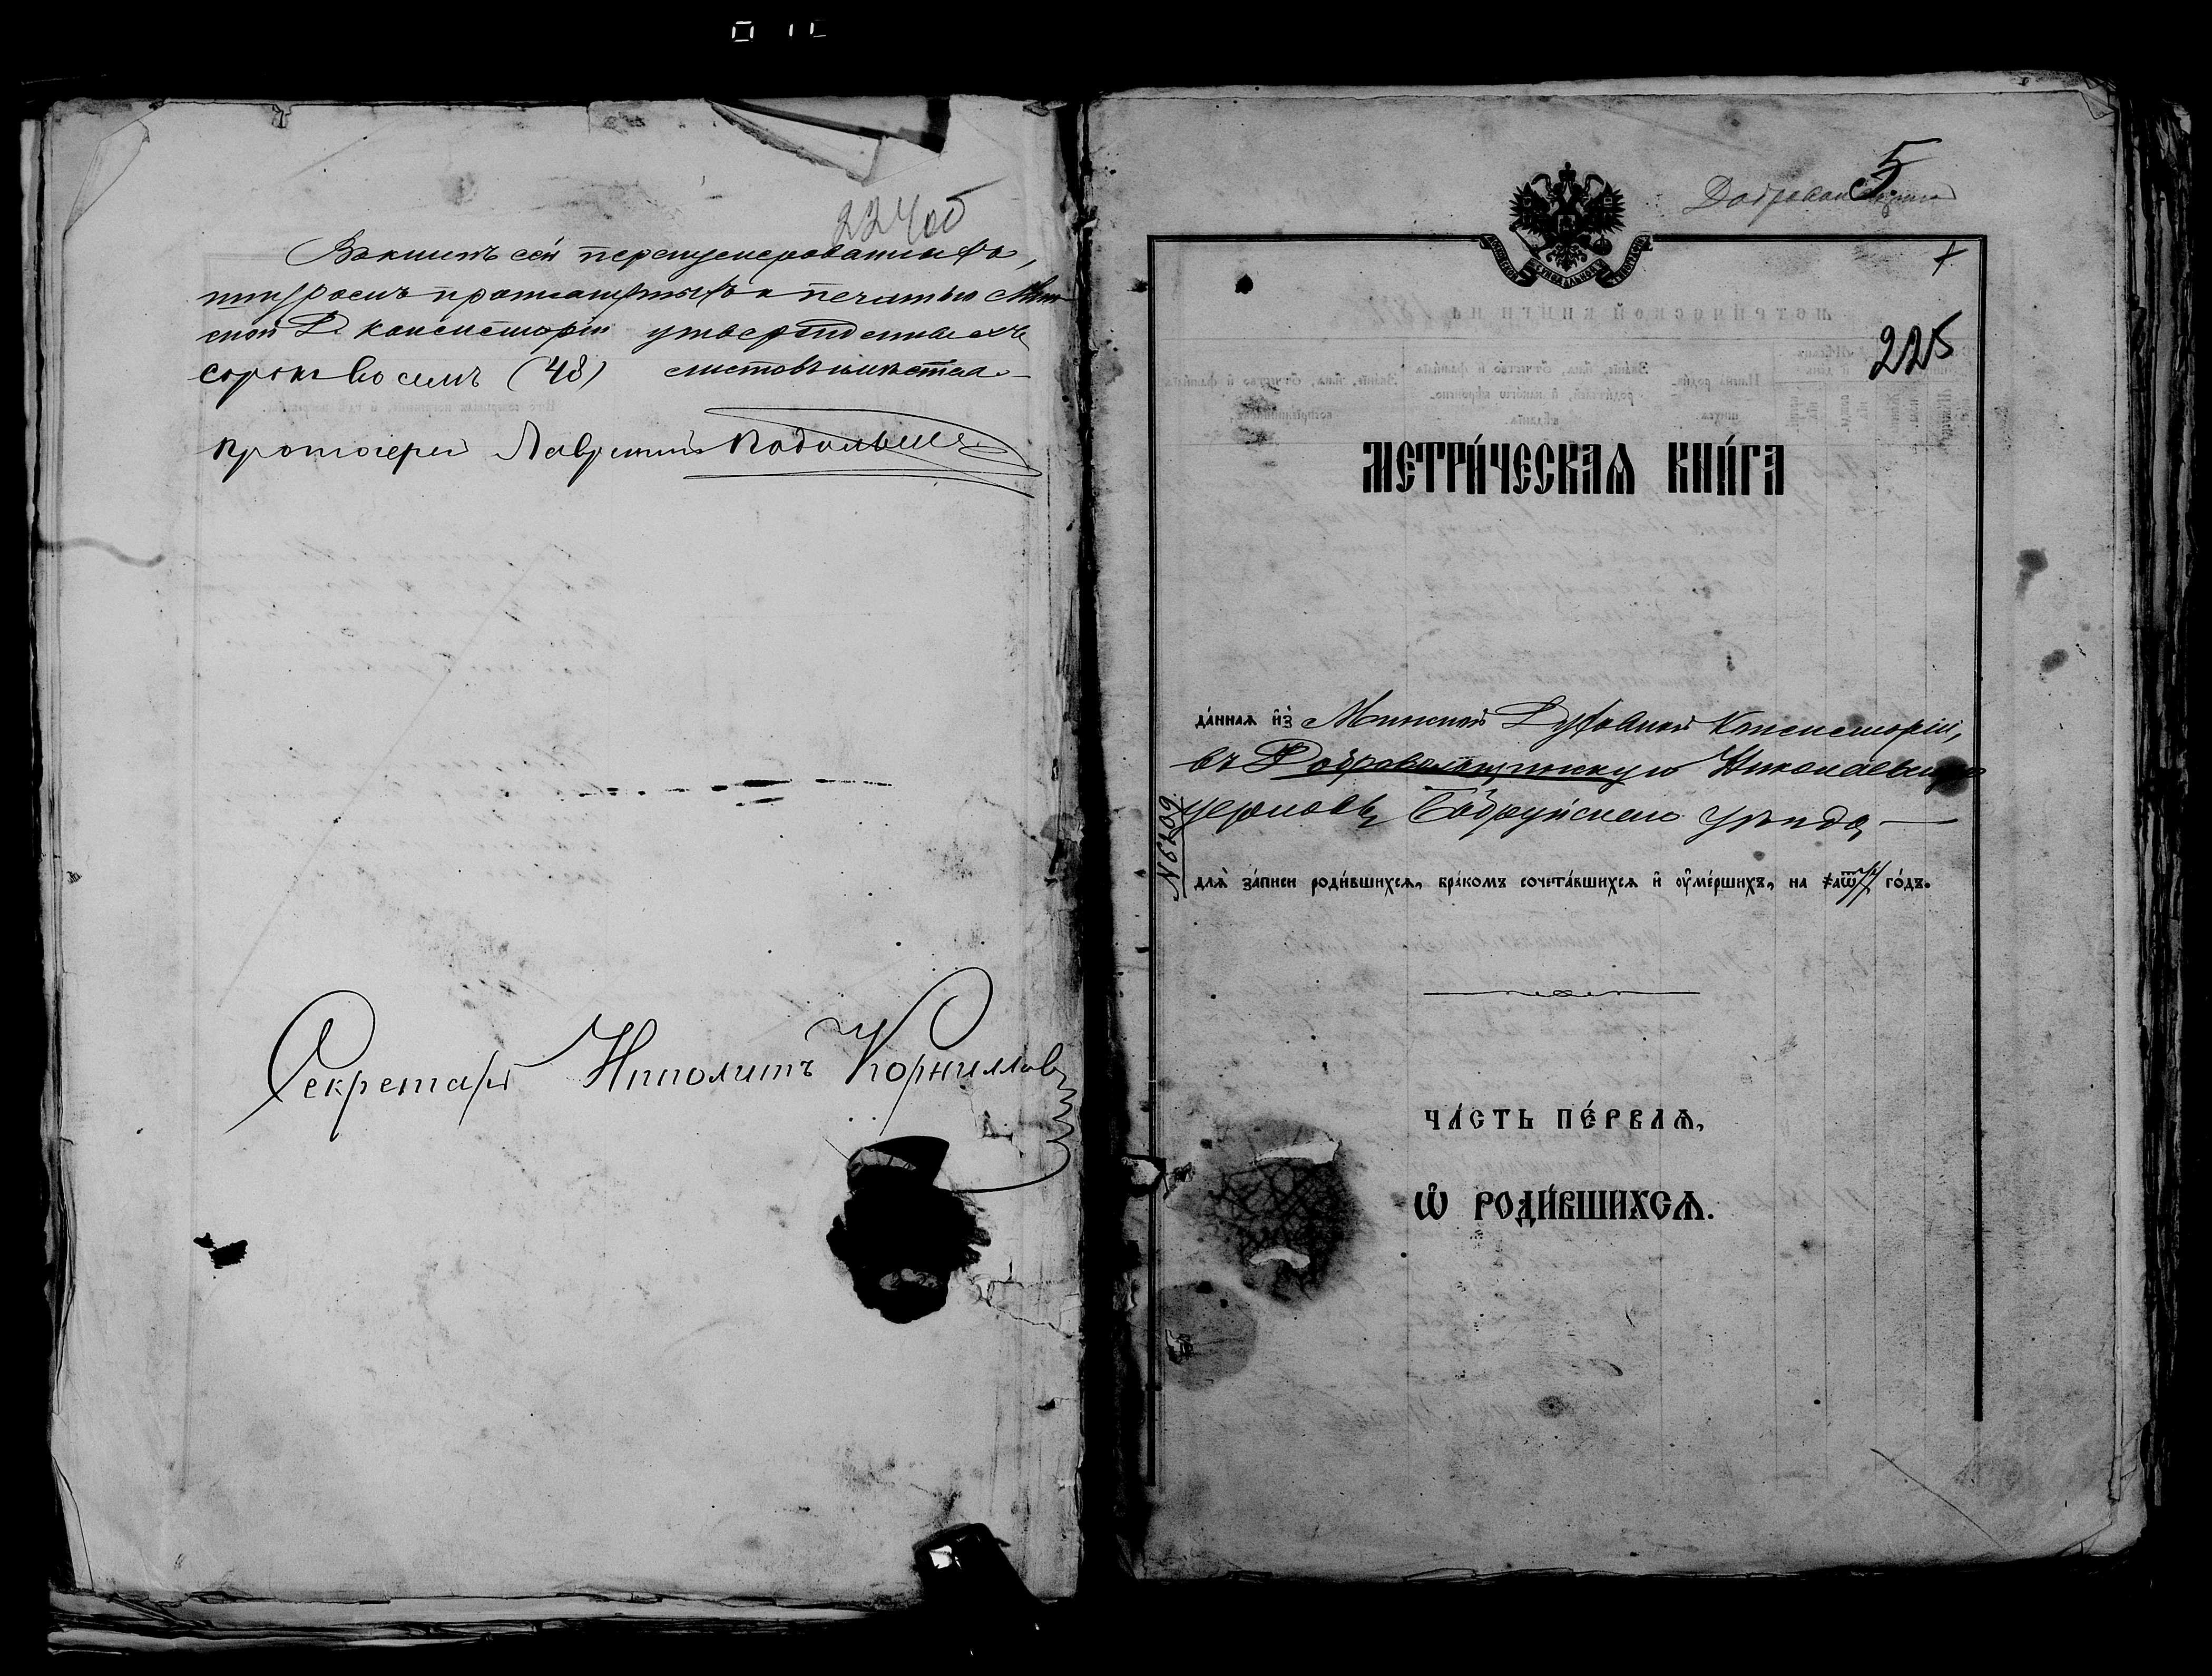 224 об
Въ книгѣ сей перенумерованныхъ,
шнуромъ пронзенныхъ и печатью Мин
ской Д. Консисторіи утвержденныхъ
сорокъ восемь (48) листовъ
Протоіерей Лаврентій Подольскій
Секретарь Ипполитъ Корниловъ
5
225
МЕТРИ́ЧЕСКАѦ КНИ́ГА
да́ннаѧ и҆з̾ Минской Духовной Консисторіи,
въ Николаевскую
церковь Бобруйскаго уѣзда
№ 6209
длѧ̀ за́писи роди́вшихсѧ, бра́комъ сочета́вшихсѧ и҆ ᲂу҆ме́ршихъ, на го́дъ.
ЧА́СТЬ ПЕ́РВАѦ,
Ѡ҆ РОДИ́ВШИХСѦ.